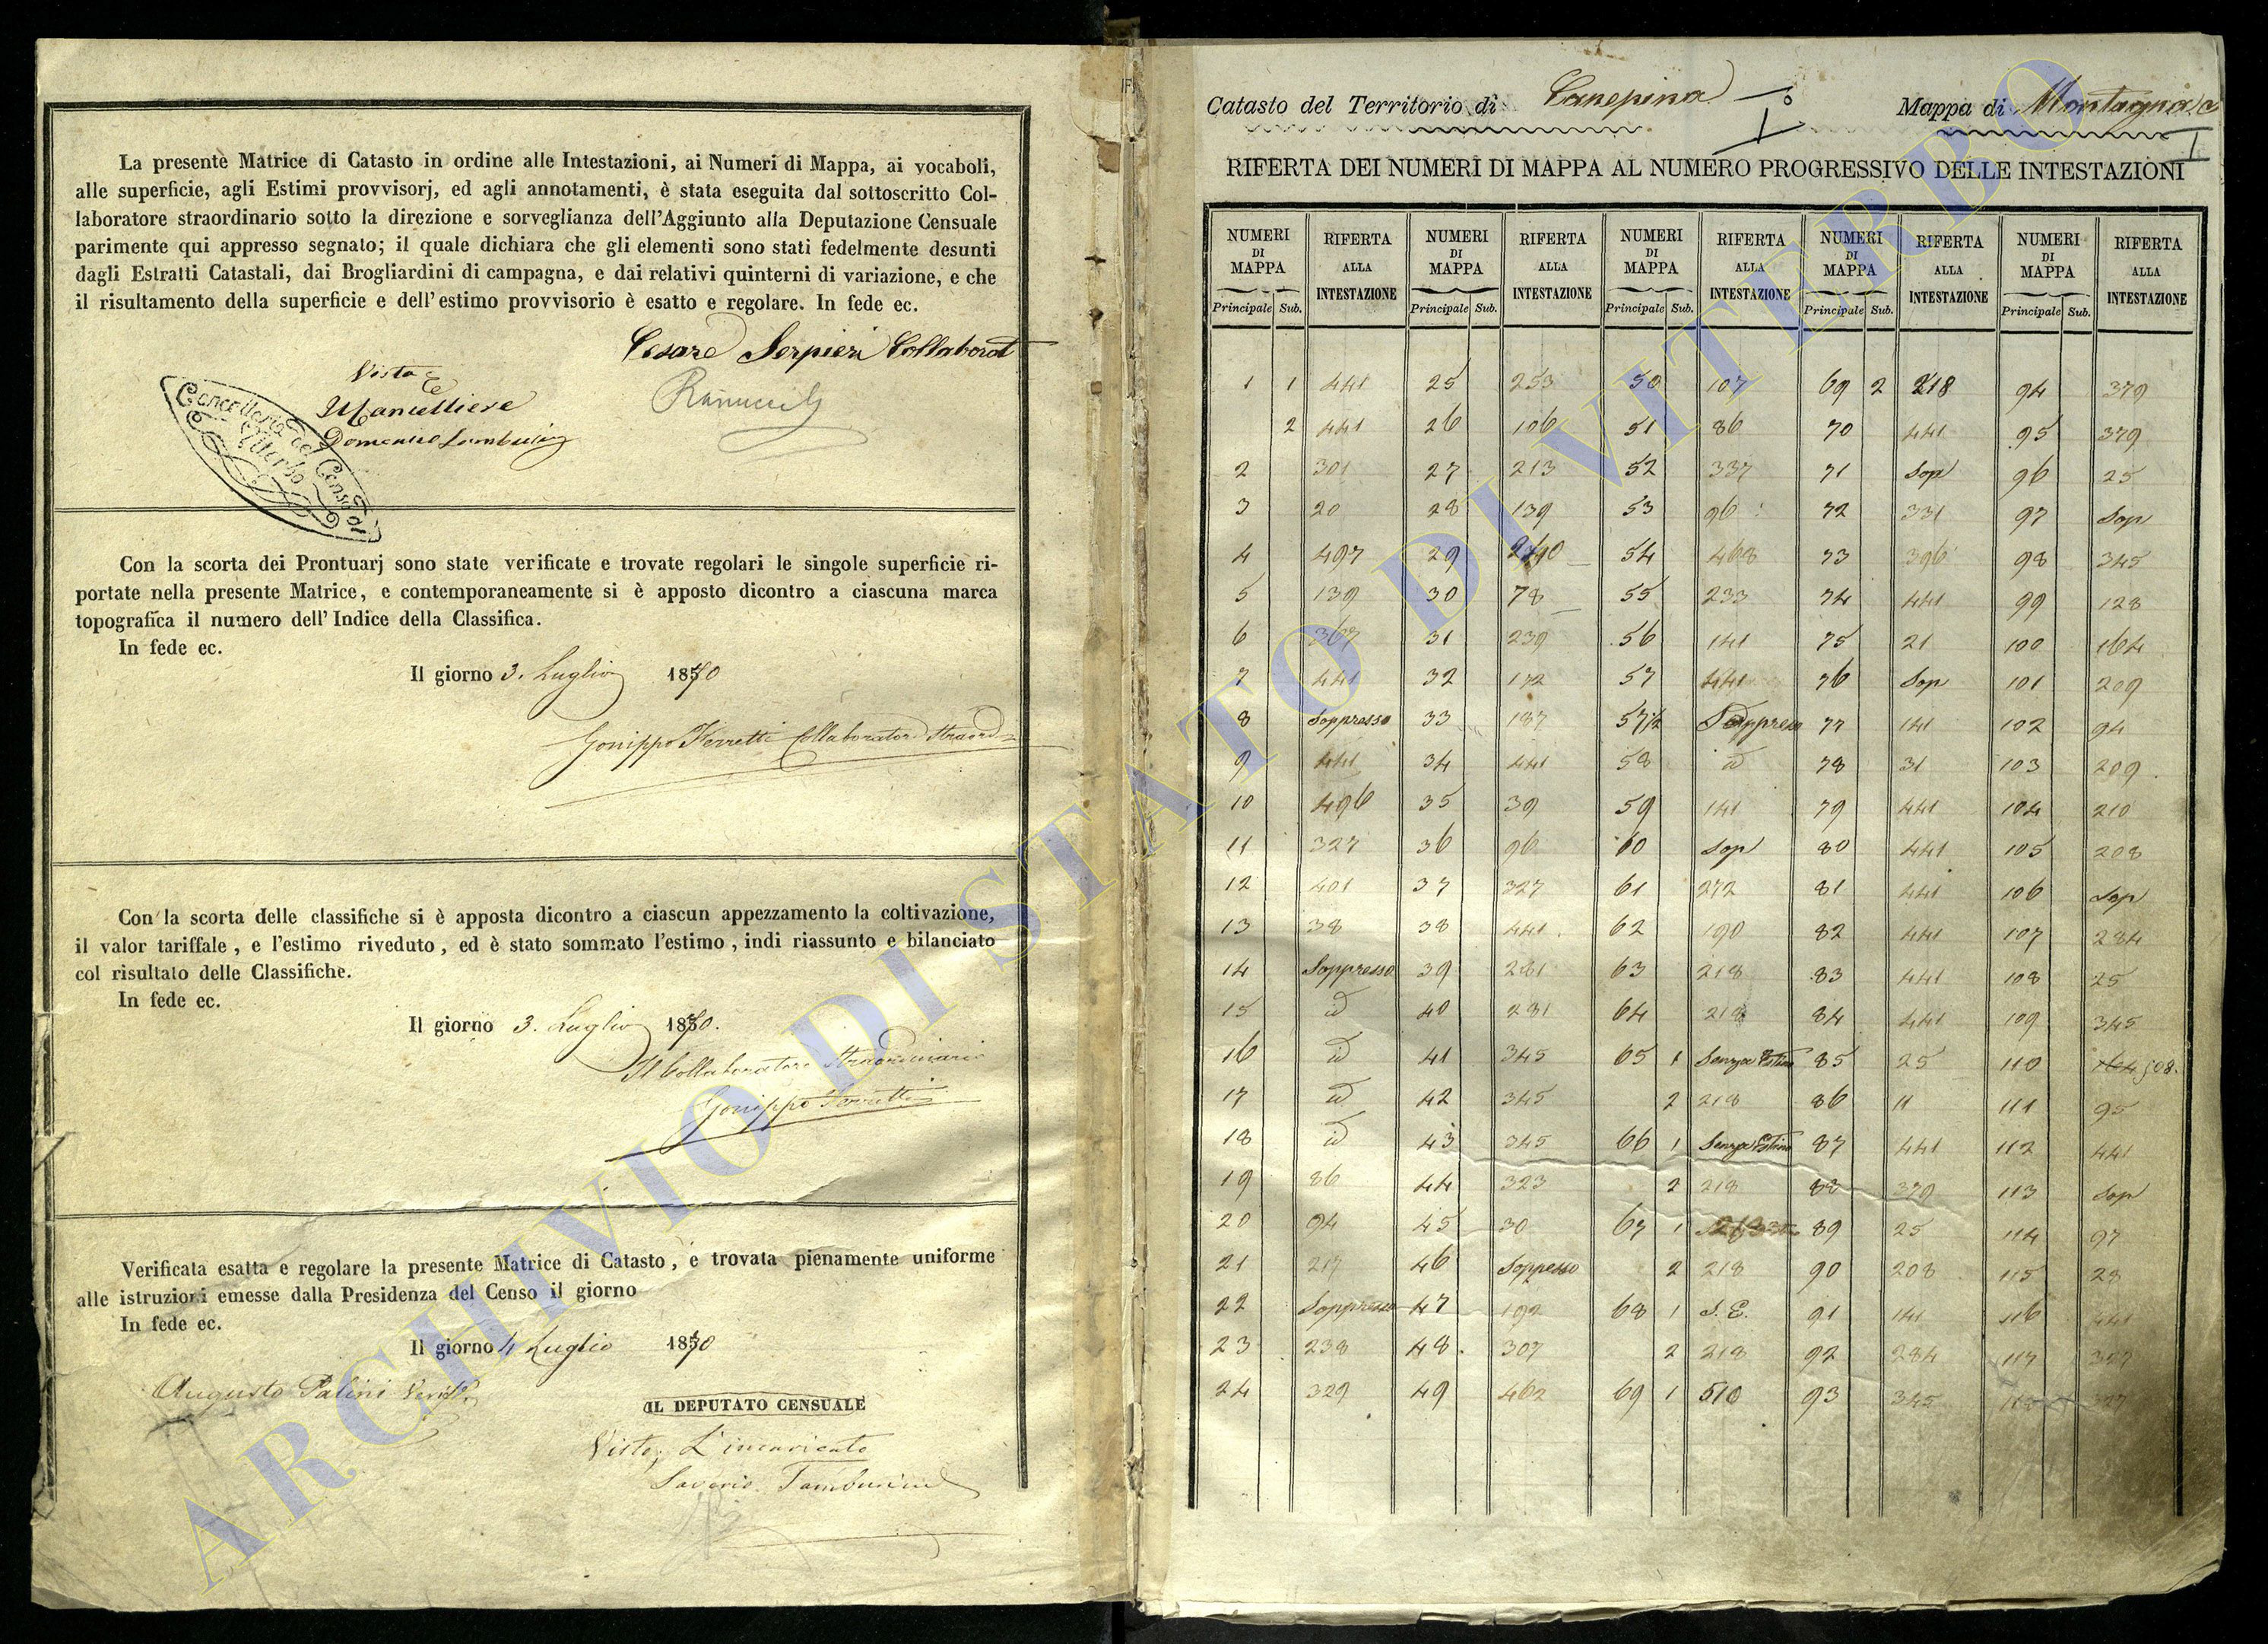 La presente Matrice di Catasto in ordine alle Intestazioni, ai Numeri di Mappa, ai vocaboli,
alle superficie, agli Estimi provvisorj, ed agli annotamenti, è stata eseguita dal sottoscritto Col-
laboratore straordinario sotto la direzione e sorveglianza dell'Aggiunto alla Deputazione Censuale
parimente qui appresso segnato; il quale dichiara che gli elementi sono stati fedelmente desunti
dagli Estratti Catastali, dai Brogliardini di campagna, e dai relativi quinterni di variazione, e che
il risultamento della superficie e dell'estimo provvisorio è esatto e regolare. In fede ec.
Cesare Serpieri Collaborat
Visto
Cancelleria del Censo di
Viterbo
Con la scorta dei Prontuarj sono state verificate e trovate regolari le singole superficie ri-
portate nella presente Matrice, e contemporaneamente si è apposto dicontro a ciascuna marca
topografica il numero dell'Indice della Classifica.
In fede ec.
Il giorno 3. Luglio 1870
Gonippo Ferretti Collaboratore Straord
Con la scorta delle classifiche si è apposta dicontro a ciascun appezzamento la coltivazione,
il valor tariffale, e l'estimo riveduto, ed è stato sommato l'estimo, indi riassunto e bilanciato
col risultato delle Classifiche.
In fede ec.
Il giorno 3. Luglio 1870.
Il Collaboratore Straordinario
Gonippo Ferretti
Verificata esatta e regolare la presente Matrice di Catasto, e trovata pienamente uniforme
alle istruzioni emesse dalla Presidenza del Censo il giorno
In fede ec.
Il giorno 4 Luglio 1870
Augusto Palini
IL DEPUTATO CENSUALE
Visto, L'incaricato
Saverio Tamburini
Catasto del Territorio di Canepina I° Mappa di Montagna
I
RIFERTA DEI NUMERI DI MAPPA AL NUMERO PROGRESSIVO DELLE INTESTAZIONI
NUMERI DI MAPPA RIFERTA ALLA INTESTAZIONE NUMERI DI MAPPA RIFERTA ALLA INTESTAZIONE NUMERI DI MAPPA RIFERTA ALLA INTESTAZIONE NUMERI DI MAPPA RIFERTA ALLA INTESTAZIONE NUMERI DI MAPPA RIFERTA ALLA INTESTAZIONE
Principale Sub. Principale Sub. Principale Sub. Principale Sub. Principale Sub.
1 1 441 25 253 50 107 69 2 218 94 379
2 441 26 106 51 86 70 441 95 379
2 301 27 213 52 337 71 Sop 96 25
3 20 28 139 53 96 72 331 97 Sop
4 497 29 54 468 73 396 98 345
5 139 30 78 55 233 74 441 99 128
6 367 31 239 56 141 75 21 100 164
7 441 32 172 57 441 76 Sop 101 209
8 Soppresso 33 187 57½ Soppresso 77 141 102 94
9 441 34 441 58 id 78 31 103 209
10 496 35 39 59 141 79 441 104 210
11 327 36 96 60 Sop 80 441 105 208
12 401 37 327 61 272 81 441 106 Sop
13 38 38 441 62 190 82 441 107 284
14 Soppresso 39 281 63 218 83 441 108 25
15 id 40 281 64 218 84 441 109 345
16 id 41 345 65 1 Senza Estimo 85 25 110 508.
17 id 42 345 2 218 86 11 111 95
18 id 43 345 66 1 Senza Estimo 87 441 112 441
19 86 44 323 2 218 88 379 113 Sop
20 94 45 30 67 1 89 25 114 97
21 217 46 Soppresso 2 218 90 208 115 28
22 Soppresso 47 192 68 1 S. E. 91 141 116 441
23 238 48. 307 2 218 92 284 117 327
24 329 49 462 69 1 510 93 345 118
ARCHIVIO DI STATO DI VITERBO